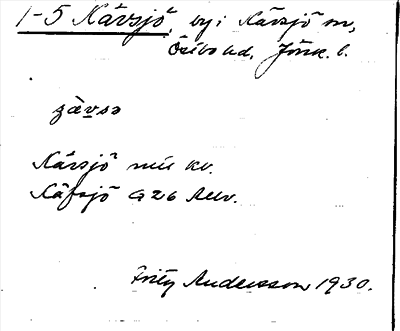 1-5 Kävsjö, by i Kävsjö sn,
Östbo hd, Jönk. l.
Kävsjö
Käfsjö G 26 Allv.
Fritz Andersson 1930.